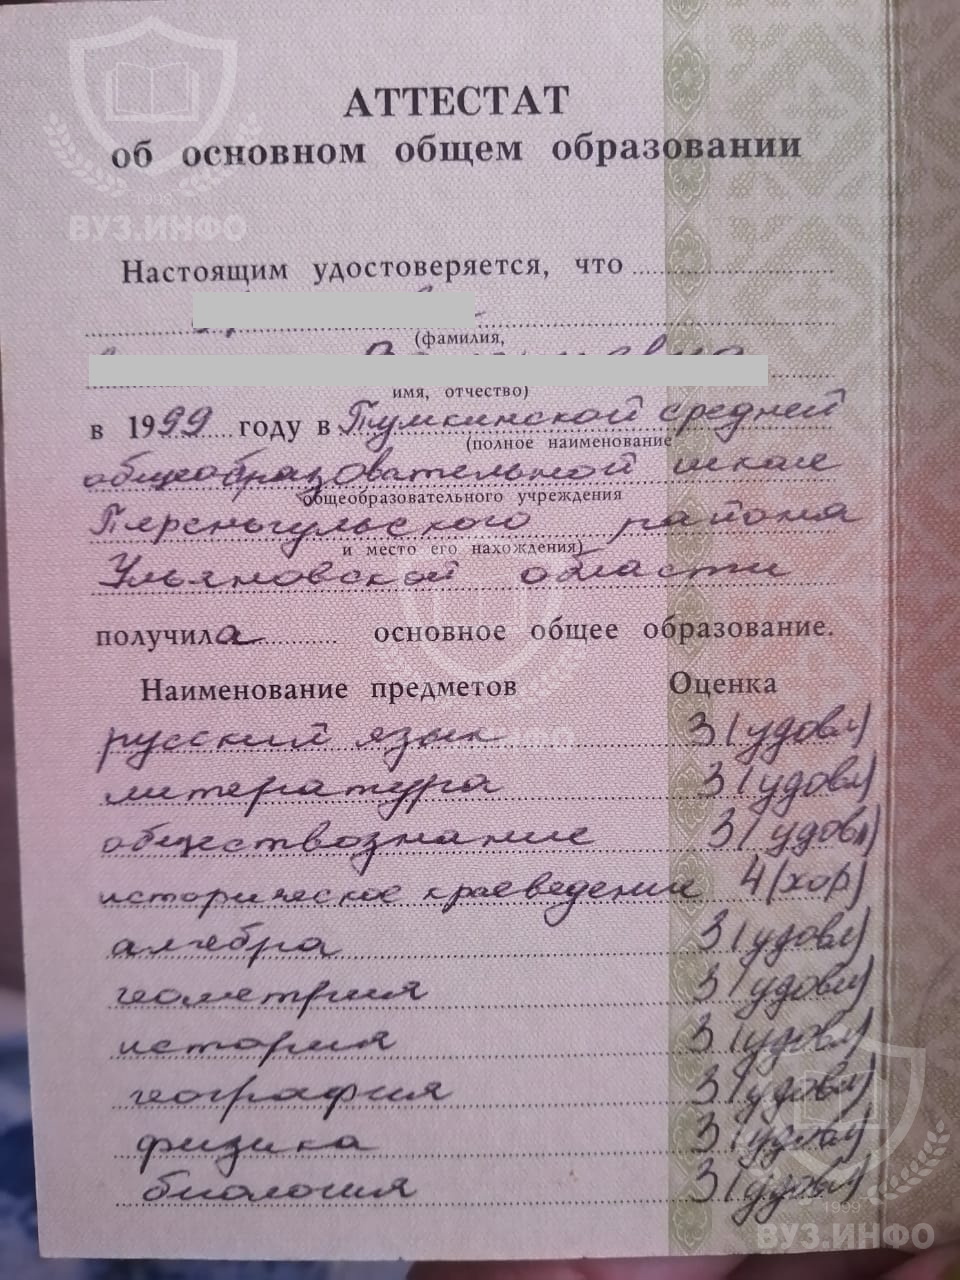 1999
ВУЗ.ИНФО
АТТЕСТАТ
об основном общем образовании
Настоящим удостоверяется, что
(фамилия,
имя, отчество)
в 1999 году в Тимкинской средней
(полное наименование
общеобразовательной школе
общеобразовательного учреждения
Тереньгульского района
и место его нахождения)
Ульяновской области
получила основное общее образование.
Наименование предметов Оценка
русский язык 3 (удовл)
литература 3 (удовл)
обществознание 3 (удовл)
историческое краеведение 4 (хор)
алгебра 3 (удовл)
геометрия 3 (удовл)
история 3 (удовл)
география 3 (удовл)
физика 3 (удовл)
биология 3 (удовл)
1999
ВУЗ.ИНФО